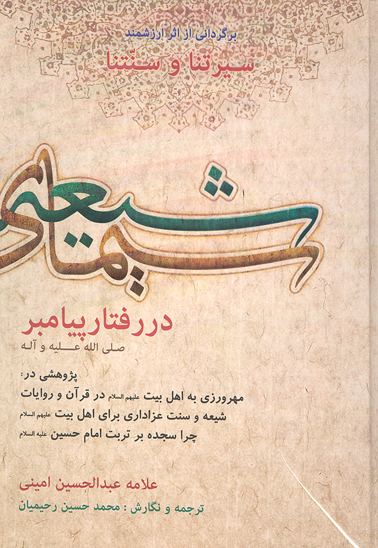 برگردانی از اثر ارزشمند
سیرتنا و سنّتنا
سیمای شیعه
در رفتار پیامبر
صلی الله علیه و آله
پژوهشی در:
مهرورزی به اهل بیت علیهم السلام در قرآن و روایات
شیعه و سنت عزاداری برای اهل بیت علیهم السلام
چرا سجده بر تربت امام حسین علیه السلام
علامه عبدالحسین امینی
ترجمه و نگارش : محمد حسین رحیمیان